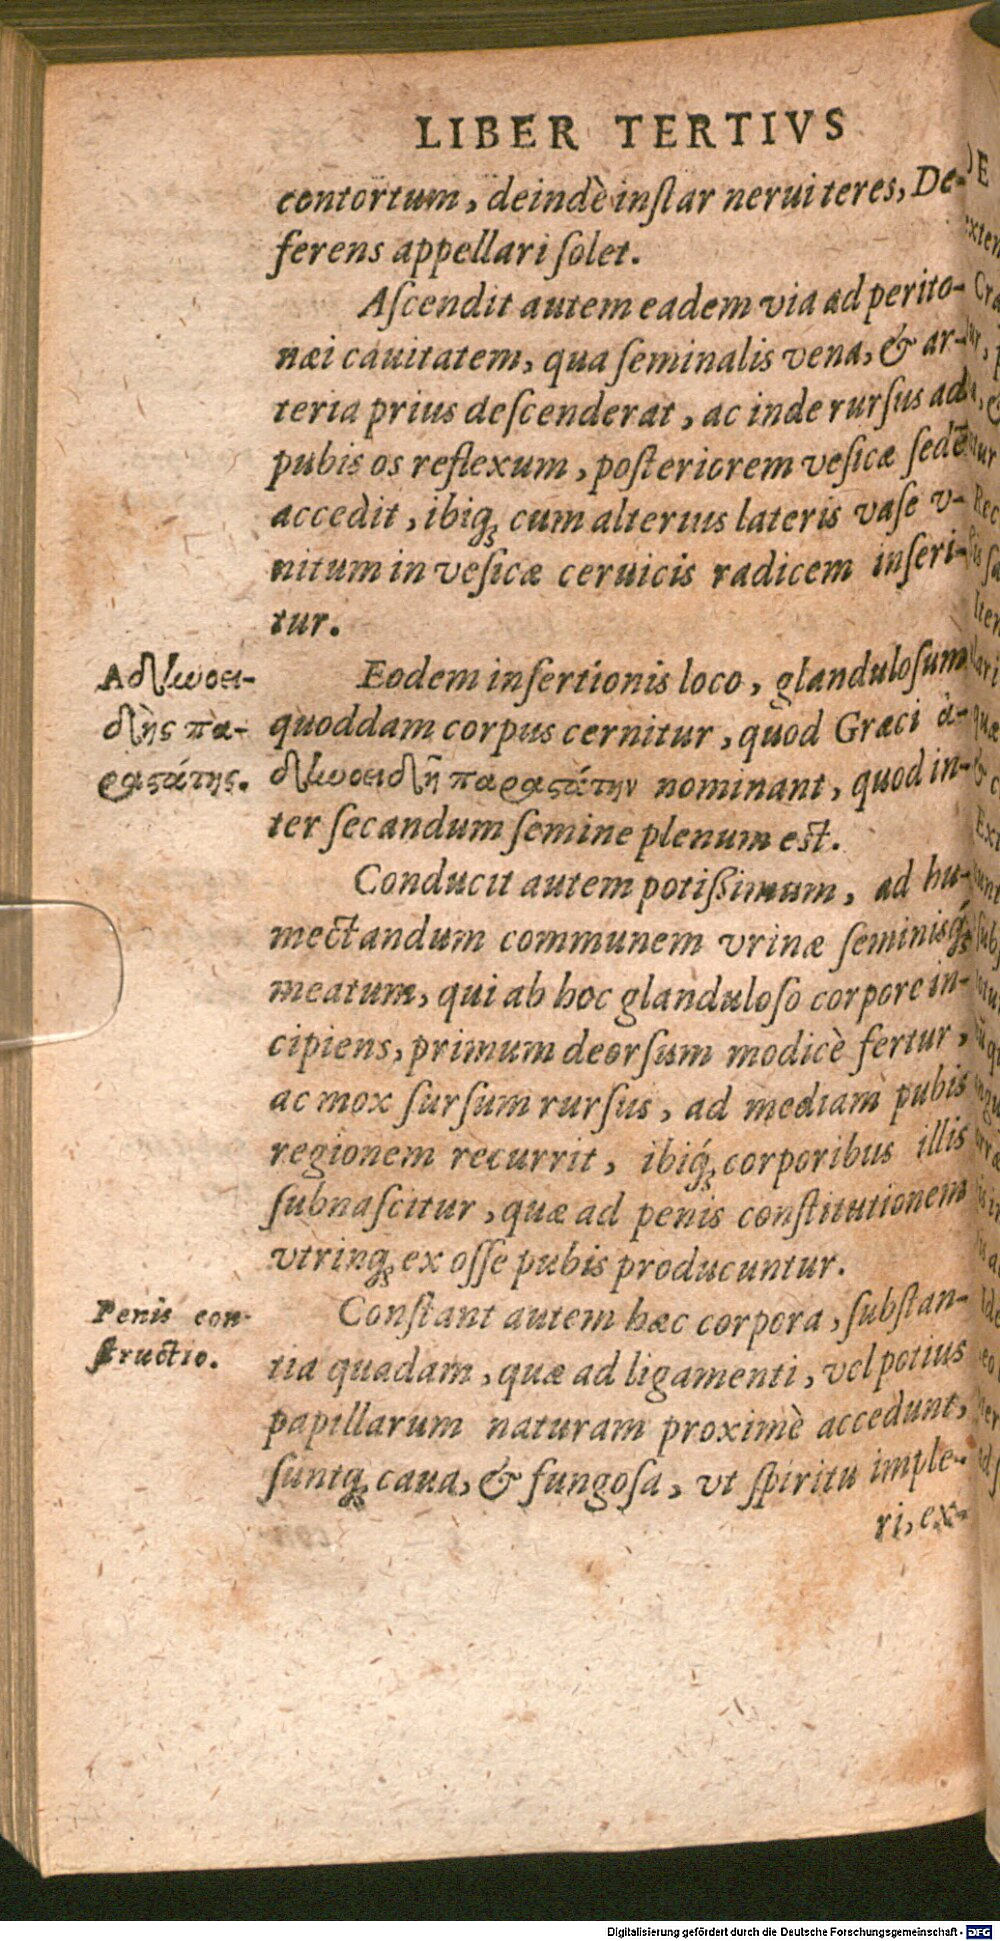 LIBER TERTIVS
contortum, deindè inſtar nerui teres, De-
ferens appellari ſolet.
Aſcendit autem eadem via ad perito-
næi cauitatem, qua ſeminalis vena, & ar-
teria prius deſcenderat, ac inde rurſus ad
pubis os reflexum, poſteriorem veſicæ ſedē
accedit, ibiq; cum alterius lateris vaſe v-
nitum in veſicæ ceruicis radicem inſeri-
tur.
Αδενοει-
δὴς πα-
ραστάτης.
Eodem inſertionis loco, glanduloſum
quoddam corpus cernitur, quòd Græci ἀ-
δενοειδῆ παραστάτην nominant, quod in-
ter ſecandum ſemine plenum eſt.
Conducit autem potiſſimum, ad hu-
mectandum communem vrinæ ſeminisq́;
meatum, qui ab hoc glanduloſo corpore in-
cipiens, primum deorſum modicè fertur,
ac mox ſurſum rurſus, ad mediam pubis
regionem recurrit, ibiq́; corporibus illis
ſubnaſcitur, quæ ad penis conſtitutionem
vtrinq; ex oſſe pubis producuntur.
Penis con-
ſtructio.
Conſtant autem hæc corpora, ſubſtan-
tia quadam, quæ ad ligamenti, vel potius
papillarum naturam proximè accedunt,
ſuntq; caua, & fungoſa, vt ſpiritu imple-
ri, ex-
Digitalisierung gefördert durch die Deutsche Forschungsgemeinschaft - DFG